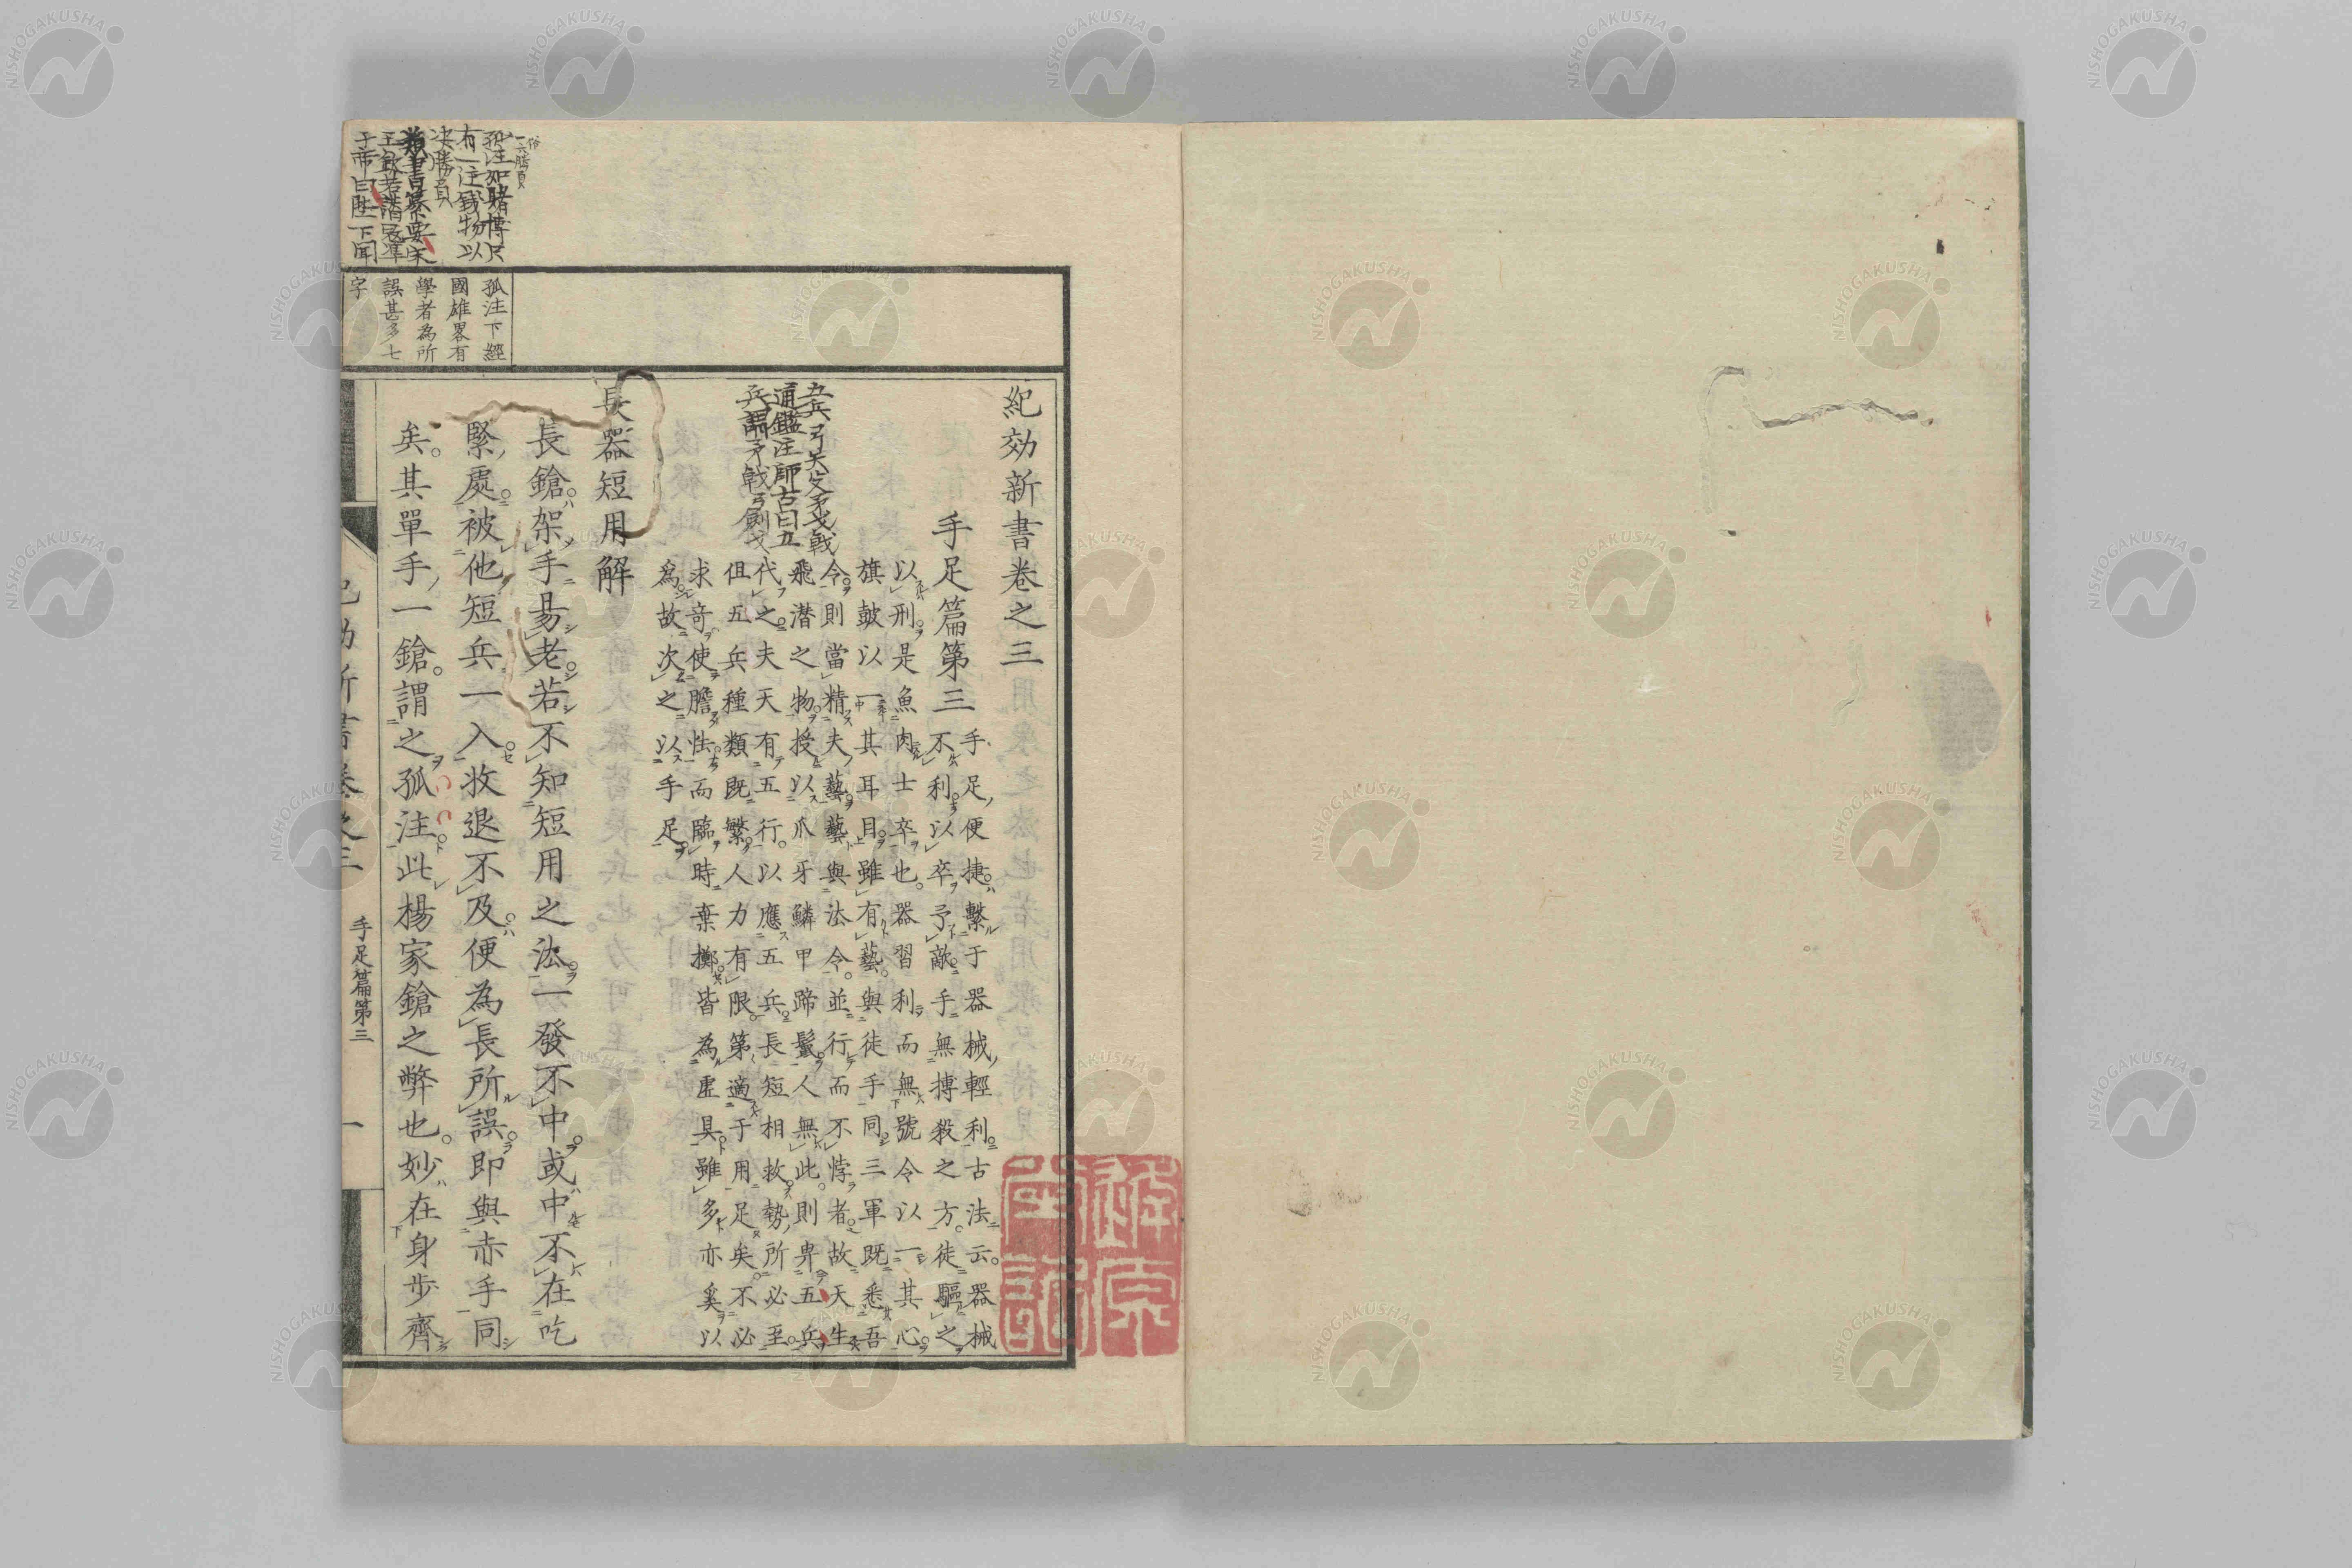 紀効新書卷之三
手足篇第三
手足便捷繫于器械輕利古法云器械
不利以卒予敵手無搏殺之方徒驅之
以刑是魚肉士卒也器習利而無號令以一其心
旗皷以一其耳目雖有藝與徒手同三軍既悉吾
令則當精夫藝藝與法令並行而不悖者故天生
飛潜之物授以爪牙鱗甲蹄鬣人無此則畀五兵
代之夫天有五行以應五兵長短相救勢所必至
但五兵種類既繁人力有限第適于用足矣不必
求奇使膽怯而臨時棄擲皆為虛具雖多亦奚以
爲故次之以手足
五兵弓矢殳矛戈戟
通鑑注師古曰五
兵謂矛戟弓劍戈
長器短用解
長鎗架手易老若不知短用之法一發不中或中不在吃
緊處被他短兵一入收退不及便為長所誤即與赤手同
矣其單手一鎗謂之孤注此楊家鎗之弊也妙在身步齊
孤注下經
國雄畧有
學者為所
誤甚多七
字
孤注如賭博只
有一注錢物以
决勝負
類書纂要宋
王欽若譖寇準
于帝曰陛下聞
手足篇第三
一
NISHOGAKUSHA